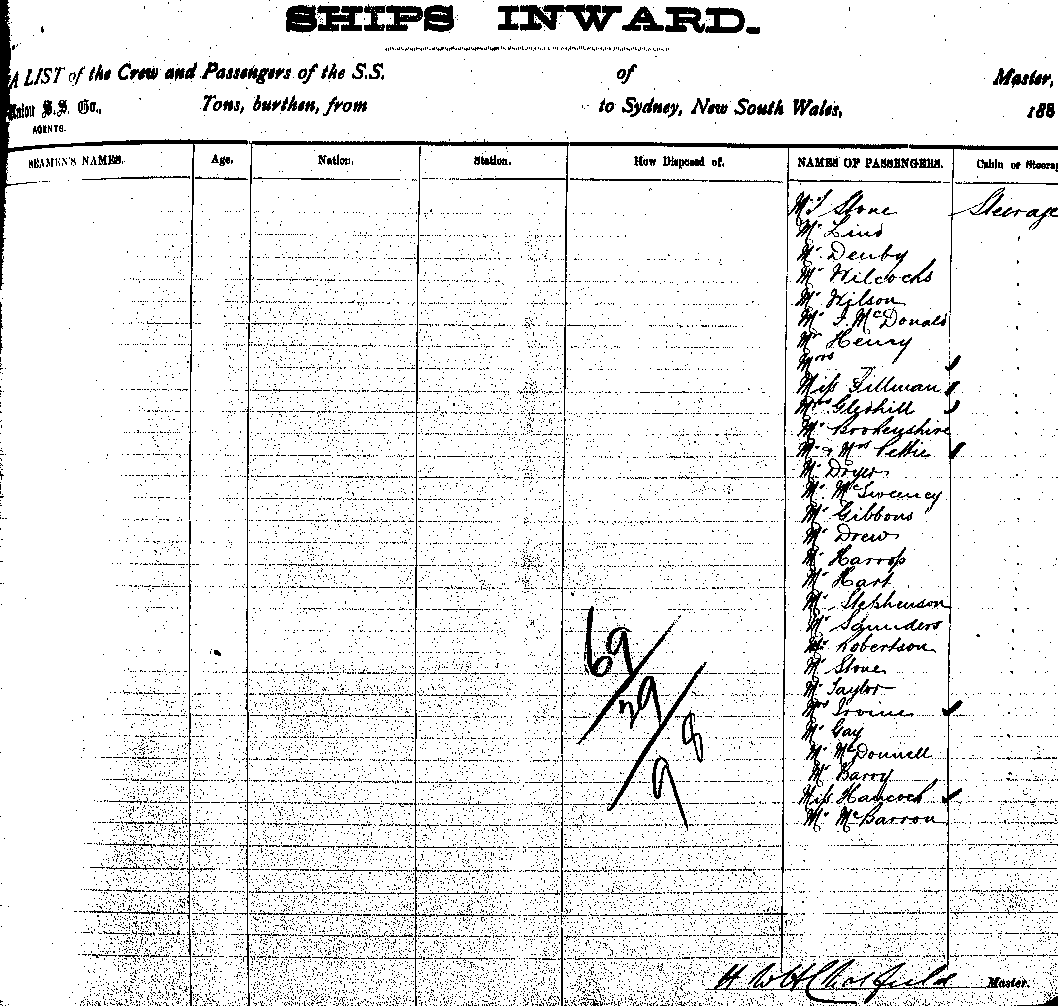 SHIPS INWARD.
A LIST of the Crew and Passengers of the S.S. of Master,
Union S.S. Co., Tons, burthen, from to Sydney, New South Wales, 188
AGENTS.
SEAMEN'S NAMES. Age. Nation. Station. How Disposed of. NAMES OF PASSENGERS. Cabin or Steerag
Stone Steerage
Mr Lind
Mr Denby
Mr Wilcocks
Mr Wilson
Mr J. McDonald
Mr Henry
Mrs
Miss Tillman
Mrs Gledhill
Mr Brookeyshire
Mr & Mrs Pettie
Mr Dwyer
Mr McSweeney
Mr Gibbons
Mr Drew
Mr Harrop
Mr Hart
Mr Stephenson
Mr Saunders
Mr Robertson
Mr Stone
Mr Taylor
Mrs Irvine
Mr Gay
Mr McDonnell
Mr Barry
Miss Hancock
Mr McBarron
69/
29/
98
Master.